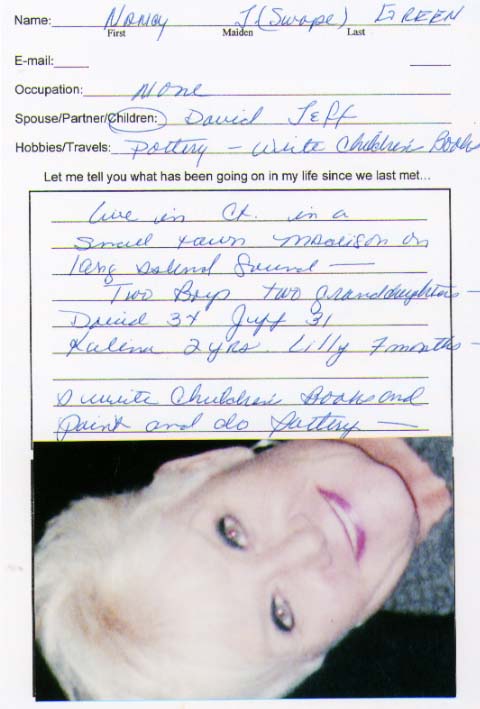 Name: Nancy J (Swope) GREEN
First Maiden Last
E-mail:
Occupation: None
Spouse/Partner/Children: David Jeff
Hobbies/Travels: Pottery – Write Children's Books
Let me tell you what has been going on in my life since we last met...
Live in Ct. in a
small town Madison on
long Island Sound —
Two Boys two granddaughters –
David 34 Jeff 31
Kalina 2 yrs. Lilly 7 months –
I write Children's Books and
paint and do pottery —